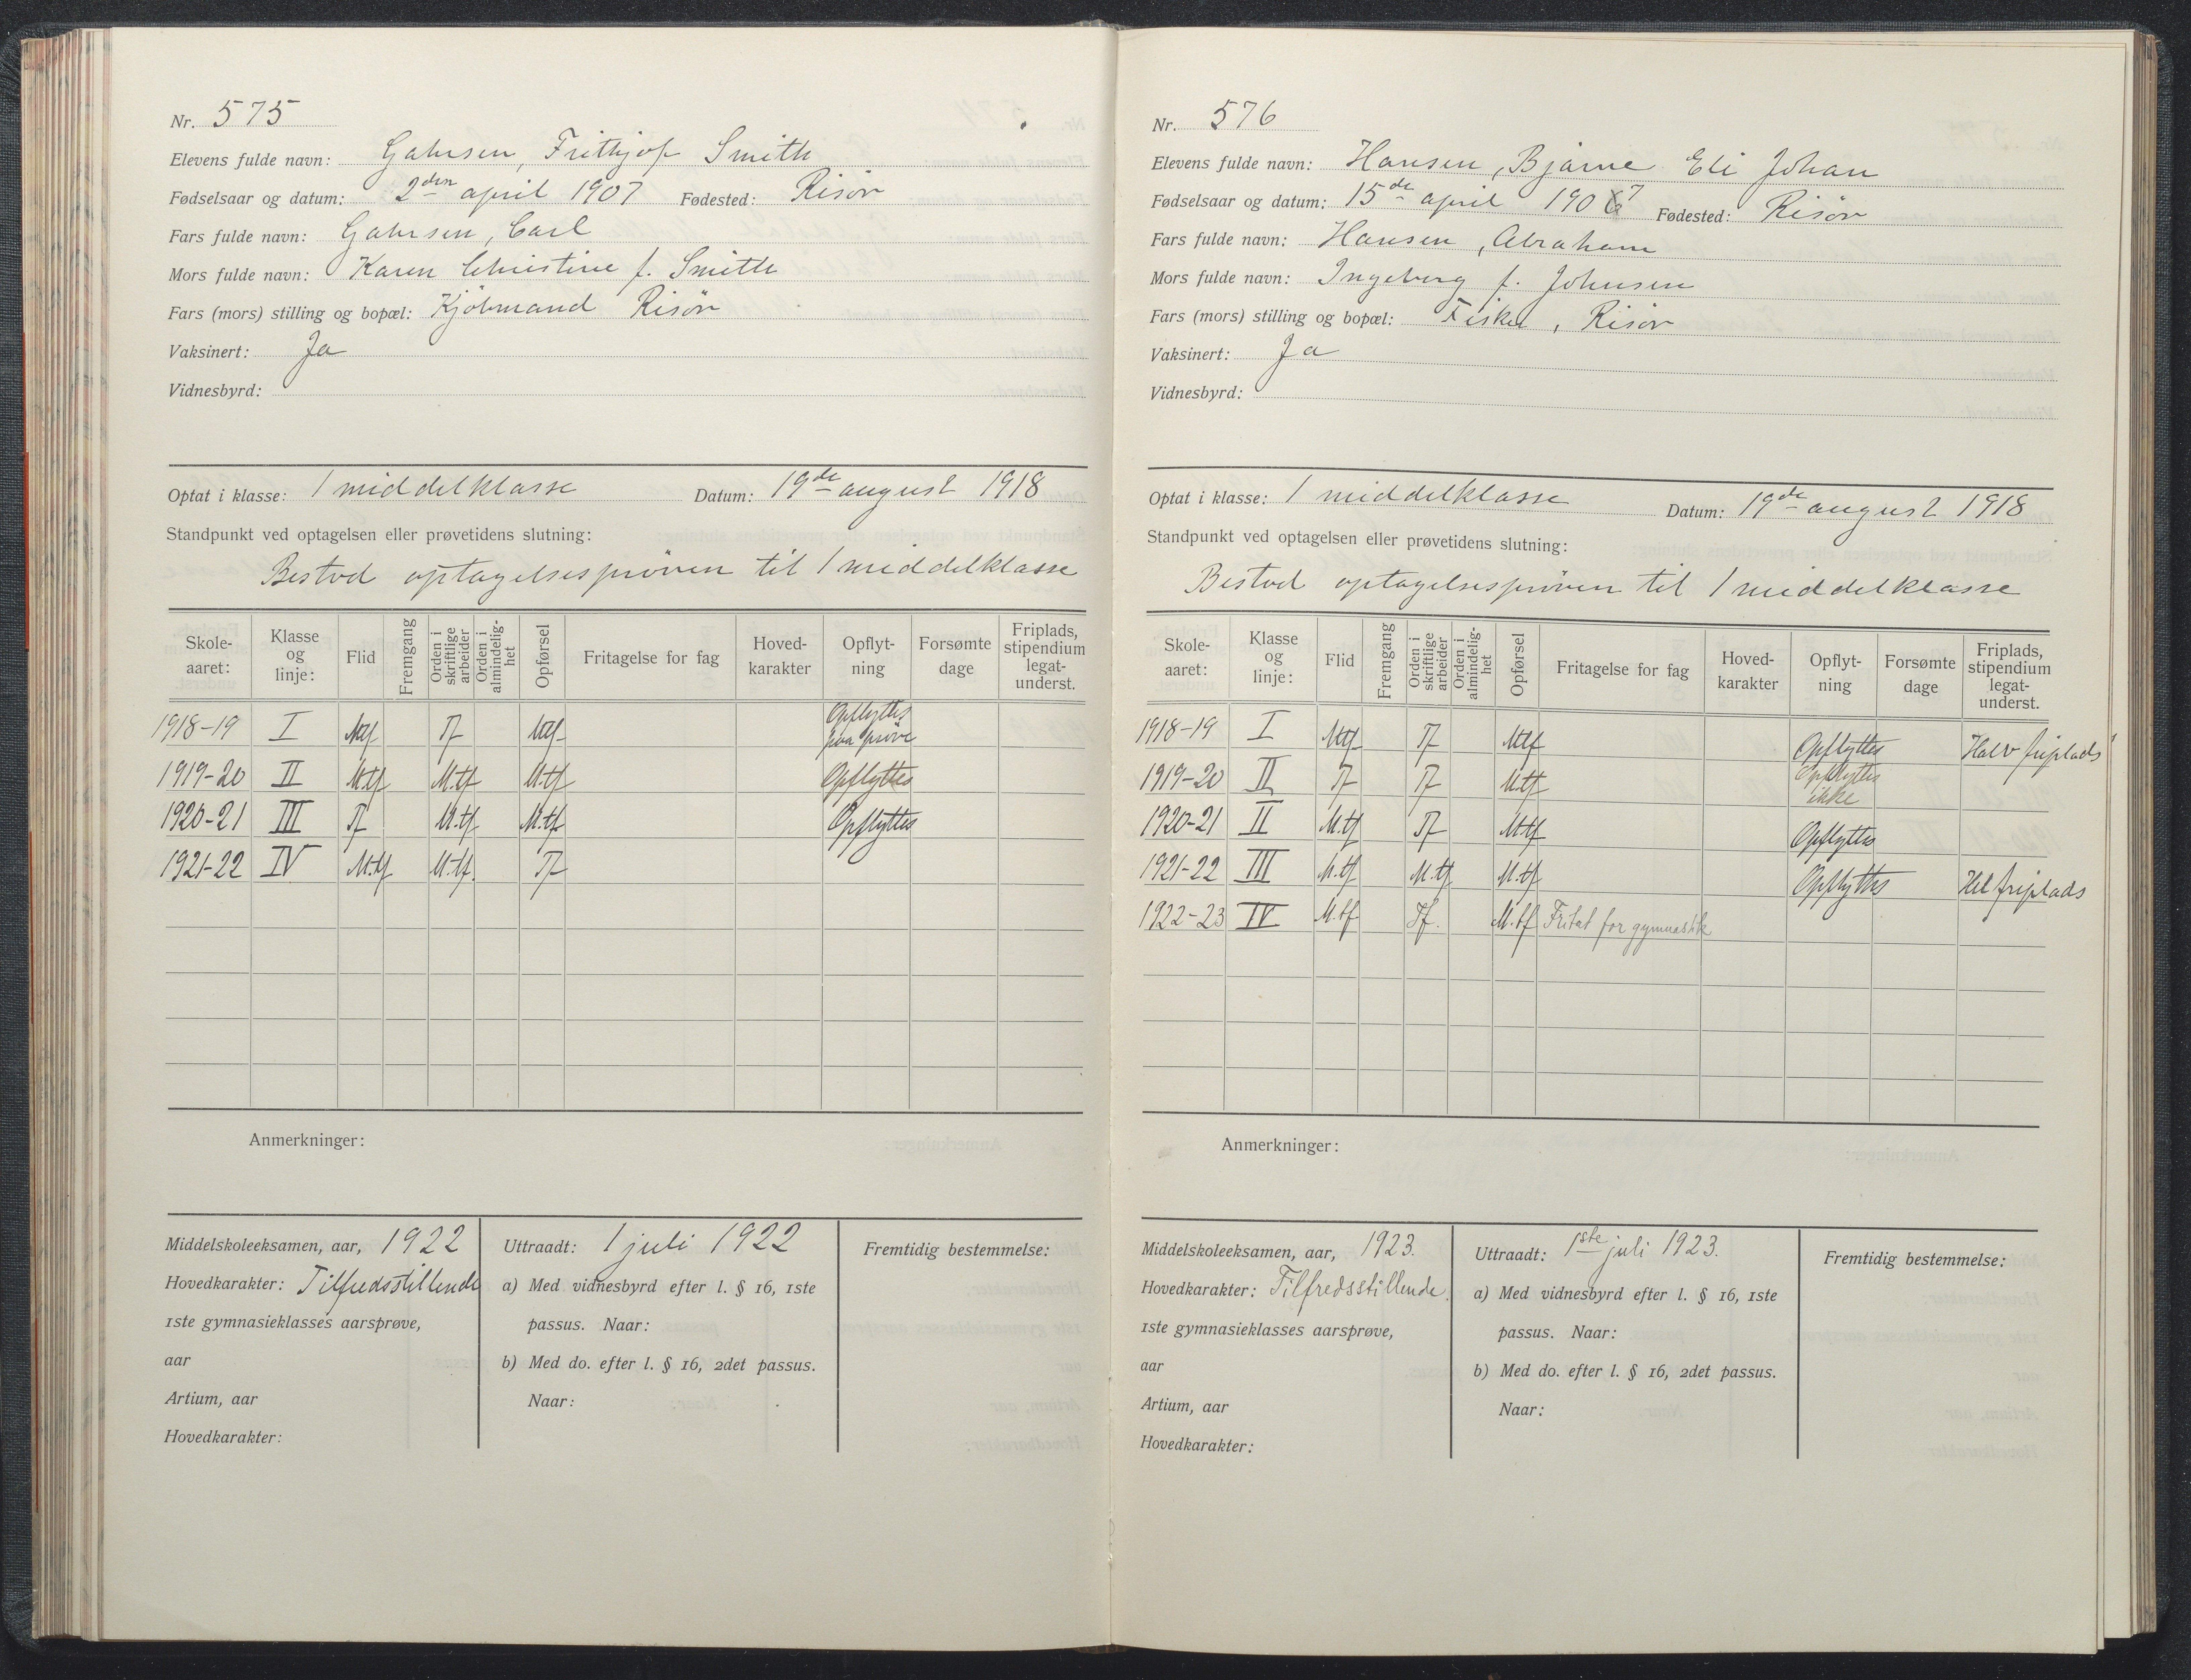 Nr. 575
Elevens fulde navn: Gahrsen, Frithjof Smith
Fødselsaar og datum: 2den april 1907 Fødested: Risör
Fars fulde navn: Gahrsen, Carl
Mors fulde navn: Karen Christine f. Smith
Fars (mors) stilling og bopæl: Kjöbmand Risör
Vaksinert: Ja
Vidnesbyrd:
Optat i klasse: 1 middelklasse Datum: 19de august 1918
Standpunkt ved optagelsen eller prøvetidens slutning:
Bestod optagelsespröven til 1 middelklasse
Skole-aaret: Klasse og linje: Flid Fremgang Orden i skriftlige arbeider Orden i almindelig-het Opførsel Fritagelse for fag Hoved-karakter Opflyt-ning Forsømte dage Friplads, stipendium legat-underst.
1918-19 I Mtf Tf Mtf Opflyttes paa pröve
1919-20 II M.tf M.tf M.tf Opflyttes
1920-21 III Tf M.tf M.tf Opflyttes
1921-22 IV M.tf M.tf. Tf
Anmerkninger:
Middelskoleeksamen, aar, 1922
Hovedkarakter: Tilfredsstillende
1ste gymnasieklasses aarsprøve,
aar
Artium, aar
Hovedkarakter:
Uttraadt: 1 juli 1922
a) Med vidnesbyrd efter l. § 16, 1ste
passus. Naar:
b) Med do. efter l. § 16, 2det passus.
Naar:
Fremtidig bestemmelse:
Nr. 576
Elevens fulde navn: Hansen, Bjarne Eli Johan
Fødselsaar og datum: 15de april 1907 Fødested: Risör
Fars fulde navn: Hansen, Abraham
Mors fulde navn: Ingeborg f. Johnsen
Fars (mors) stilling og bopæl: Fisker, Risör
Vaksinert: Ja
Vidnesbyrd:
Optat i klasse: 1 middelklasse Datum: 19de august 1918
Standpunkt ved optagelsen eller prøvetidens slutning:
Bestod optagelsespröven til 1 middelklasse
Skole-aaret: Klasse og linje: Flid Fremgang Orden i skriftlige arbeider Orden i almindelig-het Opførsel Fritagelse for fag Hoved-karakter Opflyt-ning Forsømte dage Friplads, stipendium legat-underst.
1918-19 I Mtf Tf Mtf Opflyttes Halv friplads
1919-20 II Tf Tf M.tf Opflyttes ikke
1920-21 II M.tf Tf M.tf Opflyttes
1921-22 III M.tf M.tf M.tf Opflyttes Hel friplads
1922-23 IV M.tf Tf. M.tf Fritat for gymnastik
Anmerkninger:
Middelskoleeksamen, aar, 1923.
Hovedkarakter: Tilfredsstillende.
1ste gymnasieklasses aarsprøve,
aar
Artium, aar
Hovedkarakter:
Uttraadt: 1ste juli 1923.
a) Med vidnesbyrd efter l. § 16, 1ste
passus. Naar:
b) Med do. efter l. § 16, 2det passus.
Naar:
Fremtidig bestemmelse: